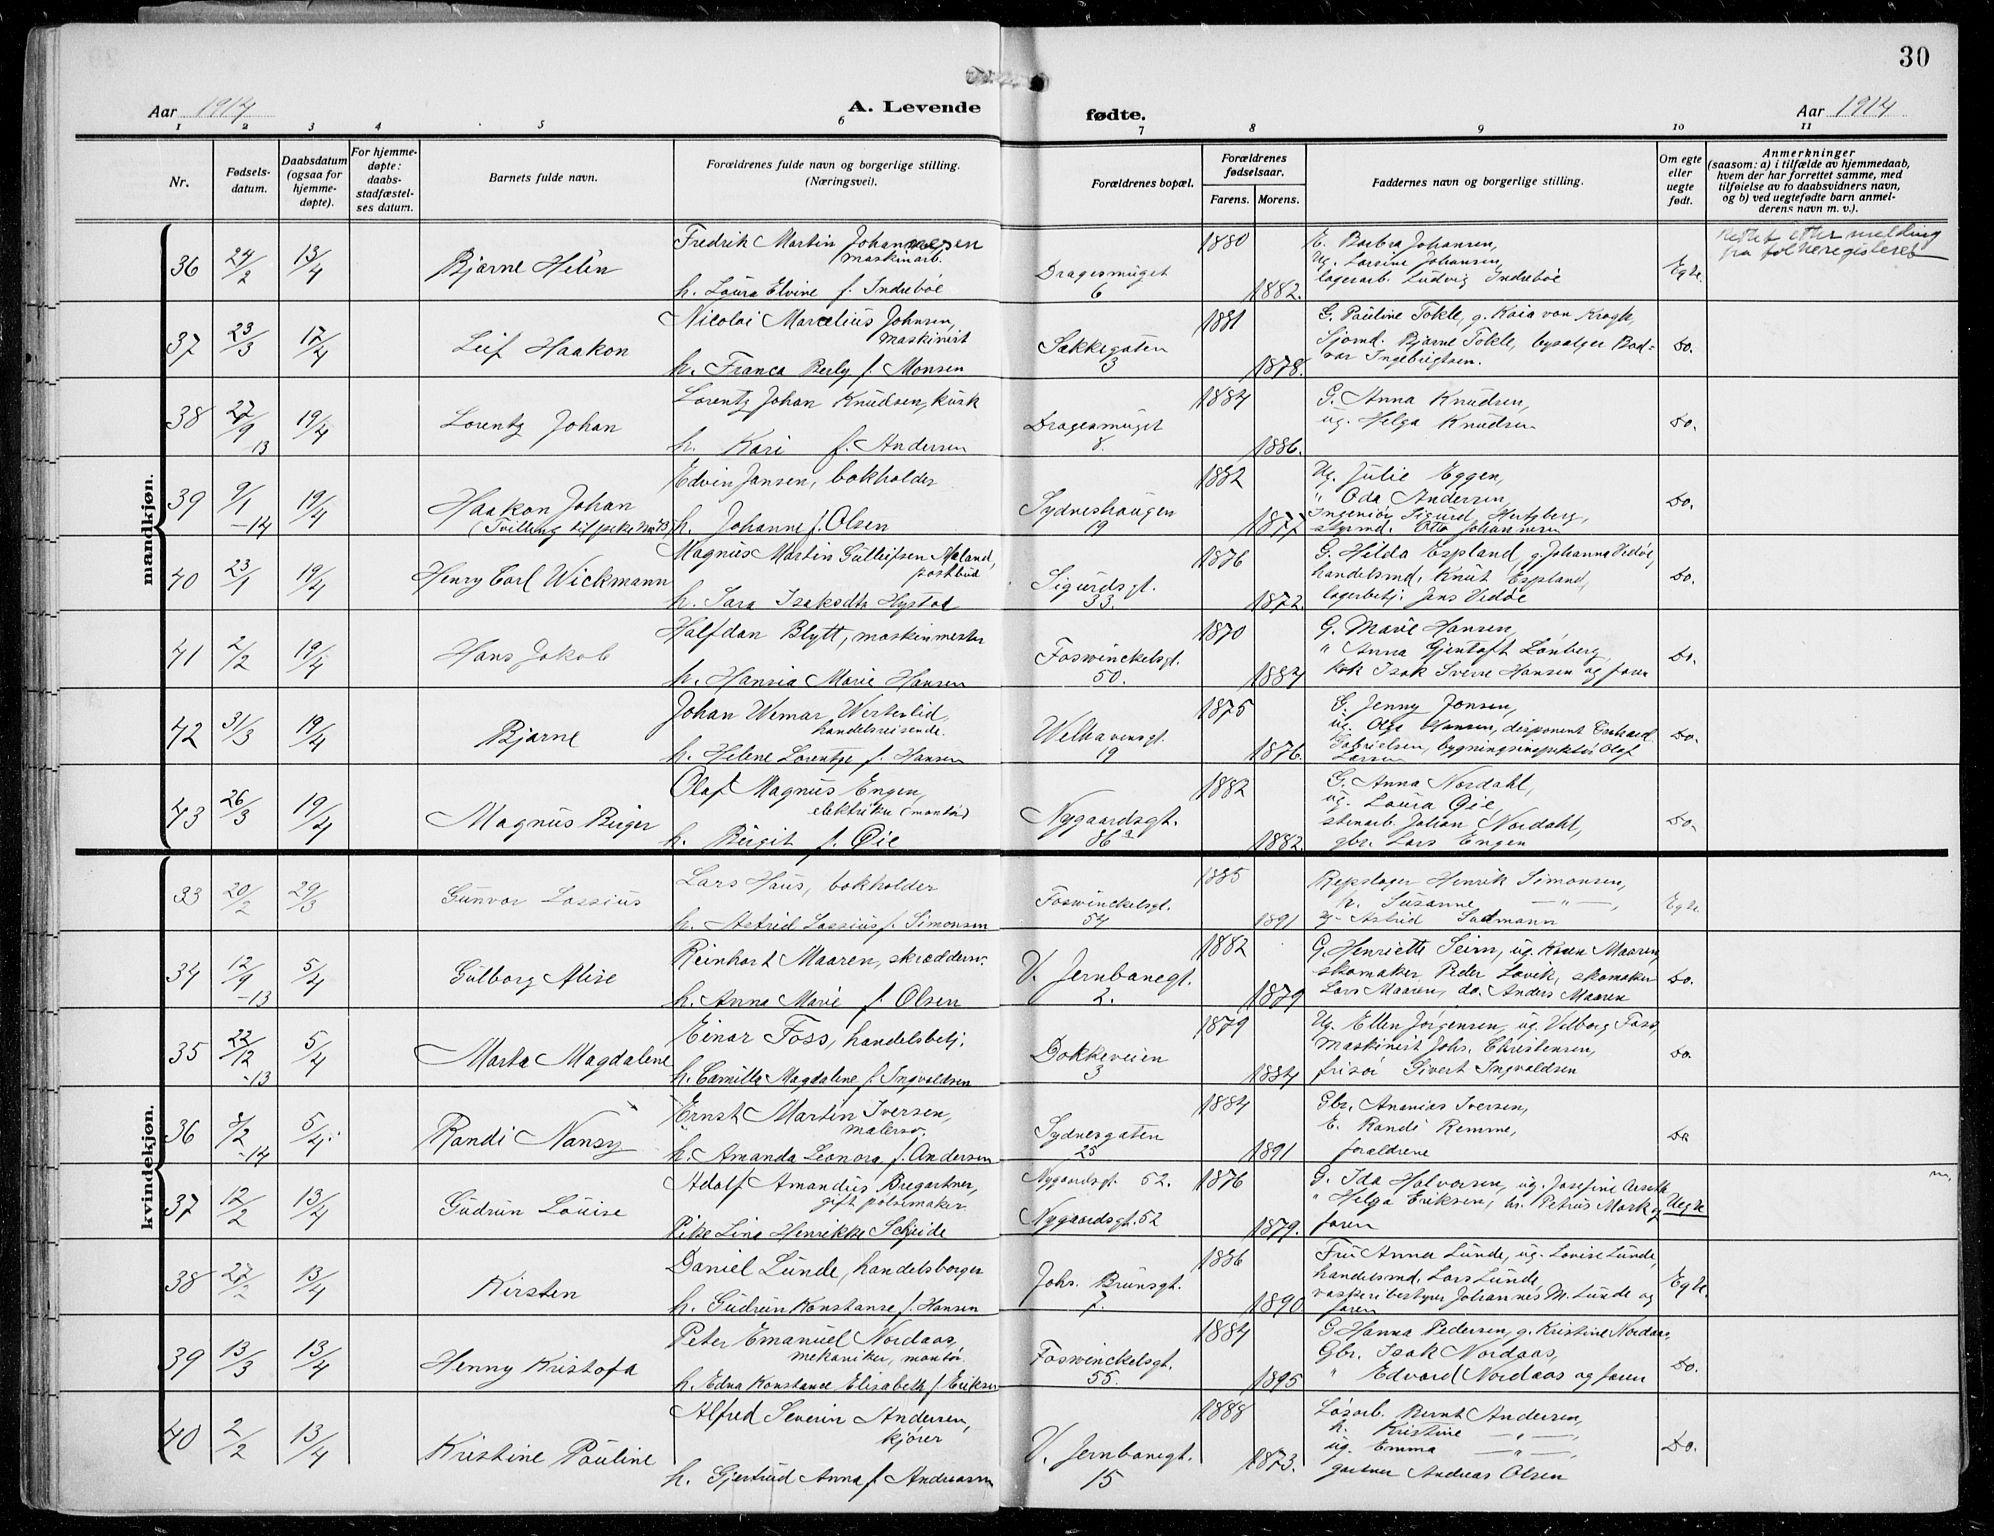 30
Aar 1914
A. Levende
fødte.
Aar 1914
1 2 3 4 5 6 7 8 9 10 11
Nr.
Fødsels-
datum.
Daabsdatum
(ogsaa for
hjemme-
døpte).
For hjemme-
døpte:
daabs-
stadfæstel-
ses datum.
Barnets fulde navn.
Forældrenes fulde navn og borgerlige stilling.
(Næringsvei).
Forældrenes bopæl.
Forældrenes
fødselsaar.
Farens. Morens.
Faddernes navn og borgerlige stilling.
Om egte
eller
uegte
født.
Anmerkninger
(saasom: a) i tilfælde av hjemmedaab,
hvem der har forrettet samme, med
tilføielse av to daabsvidners navn,
og b) ved uegtefødte barn anmel-
derens navn m. v.).
mandkjøn.
36 24/2 13/4 Bjarne Helén
Fredrik Martin Johannesen
maskinarb.
h. Laura Elvine f. Indreböe
Dragesmuget
6
1880
1882.
E. Barbra Johansen,
Ug. Larsine Johansen,
lagerarb. Ludvig Indreböe
Egte.
Rettet etter melding
fra folkeregisteret
37 23/3 17/4 Leif Haakon
Nicolai Marcelius Johnsen,
maskinist
h. Franca Berly f. Monsen
Sækkegaten
3
1881
1878.
G. Pauline Tokle, g. Kaia von Krogh,
Sjømd. Bjarne Tokle, bysælger Bad-
var Ingebrigtsen.
Do.
38 27/9 13 19/4 Lorentz Johan
Lorentz Johan Knudsen, kusk
h. Kari f. Andersen
Dragesmuget
8.
1884
1886.
G. Anna Knudsen,
ug. Helga Knudsen
Do.
39 9/1 -14 19/4 Haakon Johan
(Tvilling til pike No 43)
Edvin Jansen, bokholder
h. Johanne f. Olsen
Sydneshaugen
19
1882
1877.
Ug. Julie Eggen,
" Oda Andersen,
Ingeniör Sigurd Hertzberg,
styrmd. Otto Johannesen
Do.
40 23/1 19/4 Henry Carl Wickmann
Magnus Martin Gulleifsen Aaland,
postbud
h. Sara Isaksdtr Hystad
Sigurdsgt.
33.
1876
1872.
G. Hilda Espland, g. Johanna Vedöe,
handelsmd. Knut Espland,
lagerbetj. Jens Vedöe
Do.
41 2/2 19/4 Hans Jakob
Halfdan Blytt, maskinmester
h. Hansia Marie Hansen
Foswinckelsgt.
50.
1870
1884
G. Marie Hansen,
" Anna Gjentoft Lönberg,
kok Isak Sverre Hansen og faren
Do.
42 31/3 19/4 Bjarne
Johan Wemar Westerlid,
handelsreisende.
h. Helene Lorentze f. Hansen
Welhavensgt.
19
1875
1876.
G. Jenny Jonsen,
ug. Olga Hansen, disponent
Gabrielsen, bygningsinspektör Olaf
Larsen
Do.
43 26/3 19/4 Magnus Birger
Olaf Magnus Engen,
elektriker (montör)
h. Birgit f. Øie
Nygaardsgt.
86 a
1882
1882.
G. Anna Nordahl,
ug. Laura Øie,
stenarb. Johan Nordahl,
gbr. Lars Engen
Do.
kvindekjøn.
33 20/2 29/3 Gunvor Lassius
Lars Haus, bokholder
h. Astrid Lassius f. Simonsen
Foswinckelsgt.
54
1885
1891
Repslager Henrik Simonsen,
h. Susanne — " —,
g. Astrid Sadmann
Egte
34 12/9 -13 5/4 Gulborg Alise
Reinhart Maaren, skræddersv.
h. Anna Marie f. Olsen
V. Jernbanegt.
2.
1882
1879
G. Henriette Seim, ug. Karen Maaren,
skomaker Peder Lavik, skomaker
Lars Maaren, do. Anders Maaren
Do.
35 22/12 -13 5/4 Marta Magdalene
Einar Foss, handelsbetj.
h. Camilla Magdalene f. Ingvaldsen
Dokkeveien
3
1879
1884
Ug. Ellen Jörgensen, ug. Valborg Foss,
Maskinist Johs. Christensen,
frisör Sivert Ingvaldsen
Do.
36 8/2 -14 5/4 Randi Nansy
Ernst Martin Iversen,
malersv.
h. Amanda Leonora f. Andersen
Sydnesgaten
25
1884
1891
Gbr. Ananias Iversen,
E. Randi Remme,
forældrene
Do
37 12/2 13/4 Gudrun Louise
Adolf Amandus Bregartner,
gift pölsemaker
Pike Lina Henrikke Scheide
Nygaardsgt. 52.
Nygaardsgt. 52
1876
1879.
G. Ida Halvorsen, ug. Josefine Arseth
" Helga Eriksen, hr. Petrus Mark og
faren
Uegte
38 27/2 13/4 Kirsten
Daniel Lunde, handelsborger
h. Gudrun Konstanse f. Hansen
Johs. Brunsgt.
7.
1886
1890
Fru Anna Lunde, ug. Lovise Lunde,
handelsmd. Lars Lunde,
vaskeribestyrer Johannes M. Lunde og
faren
Egte.
39 13/3 13/4 Henny Kristofa
Peter Emanuel Nordaas,
mekaniker, montör
h. Edna Konstance Elisabeth f. Eriksen
Foswinckelsgt.
55.
1884
1895
G. Hanna Pedersen, g. Kristine Nordaas,
Gbr. Isak Nordaas,
" Edvard Nordaas og faren
Do.
40 2/2 13/4 Kristine Pauline
Alfred Severin Andersen,
kjører
h. Gjertrud Anna f. Andreassen
V. Jernbanegt.
15
1888
1873.
Løsarb. Bernt Andersen,
h. Kristine — " —,
ug. Emma — " —,
gartner Andreas Olsen
Do.